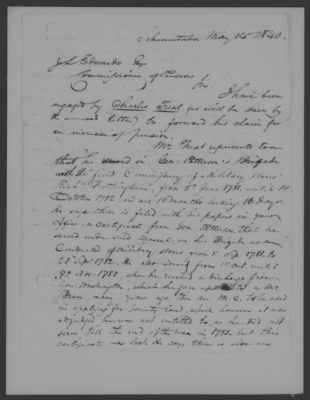 May 25th 1840.
J. L. Edwards Esq
Commissioner of Pensions
Sir, I have been
engaged by Charles Treat (as will be seen by
the annexed letter) to forward his claim for
an increase of pension.
Mr Treat represents to me
that he served in Gen: Patterson's Brigade
with the field Commissary of Military Stores
from 5th June 1781, until 19
October 1782
He says there is filed with his papers in your
Office, a certificate from Gen Patterson that he
served under said General in his Brigade as a
Conductor of Military Stores from 5 1781. to
1782. He also served from 1st Oct. until
when he received a discharge from
Gen Washington, which he gave up to a Mr
many years ago then an M. C. to be used
in applying for bounty land, while answer it was
adjudged he was not entitled to, as he did not
serve till the end of the war in 1783. but this
certificate was lost. He says there is also on